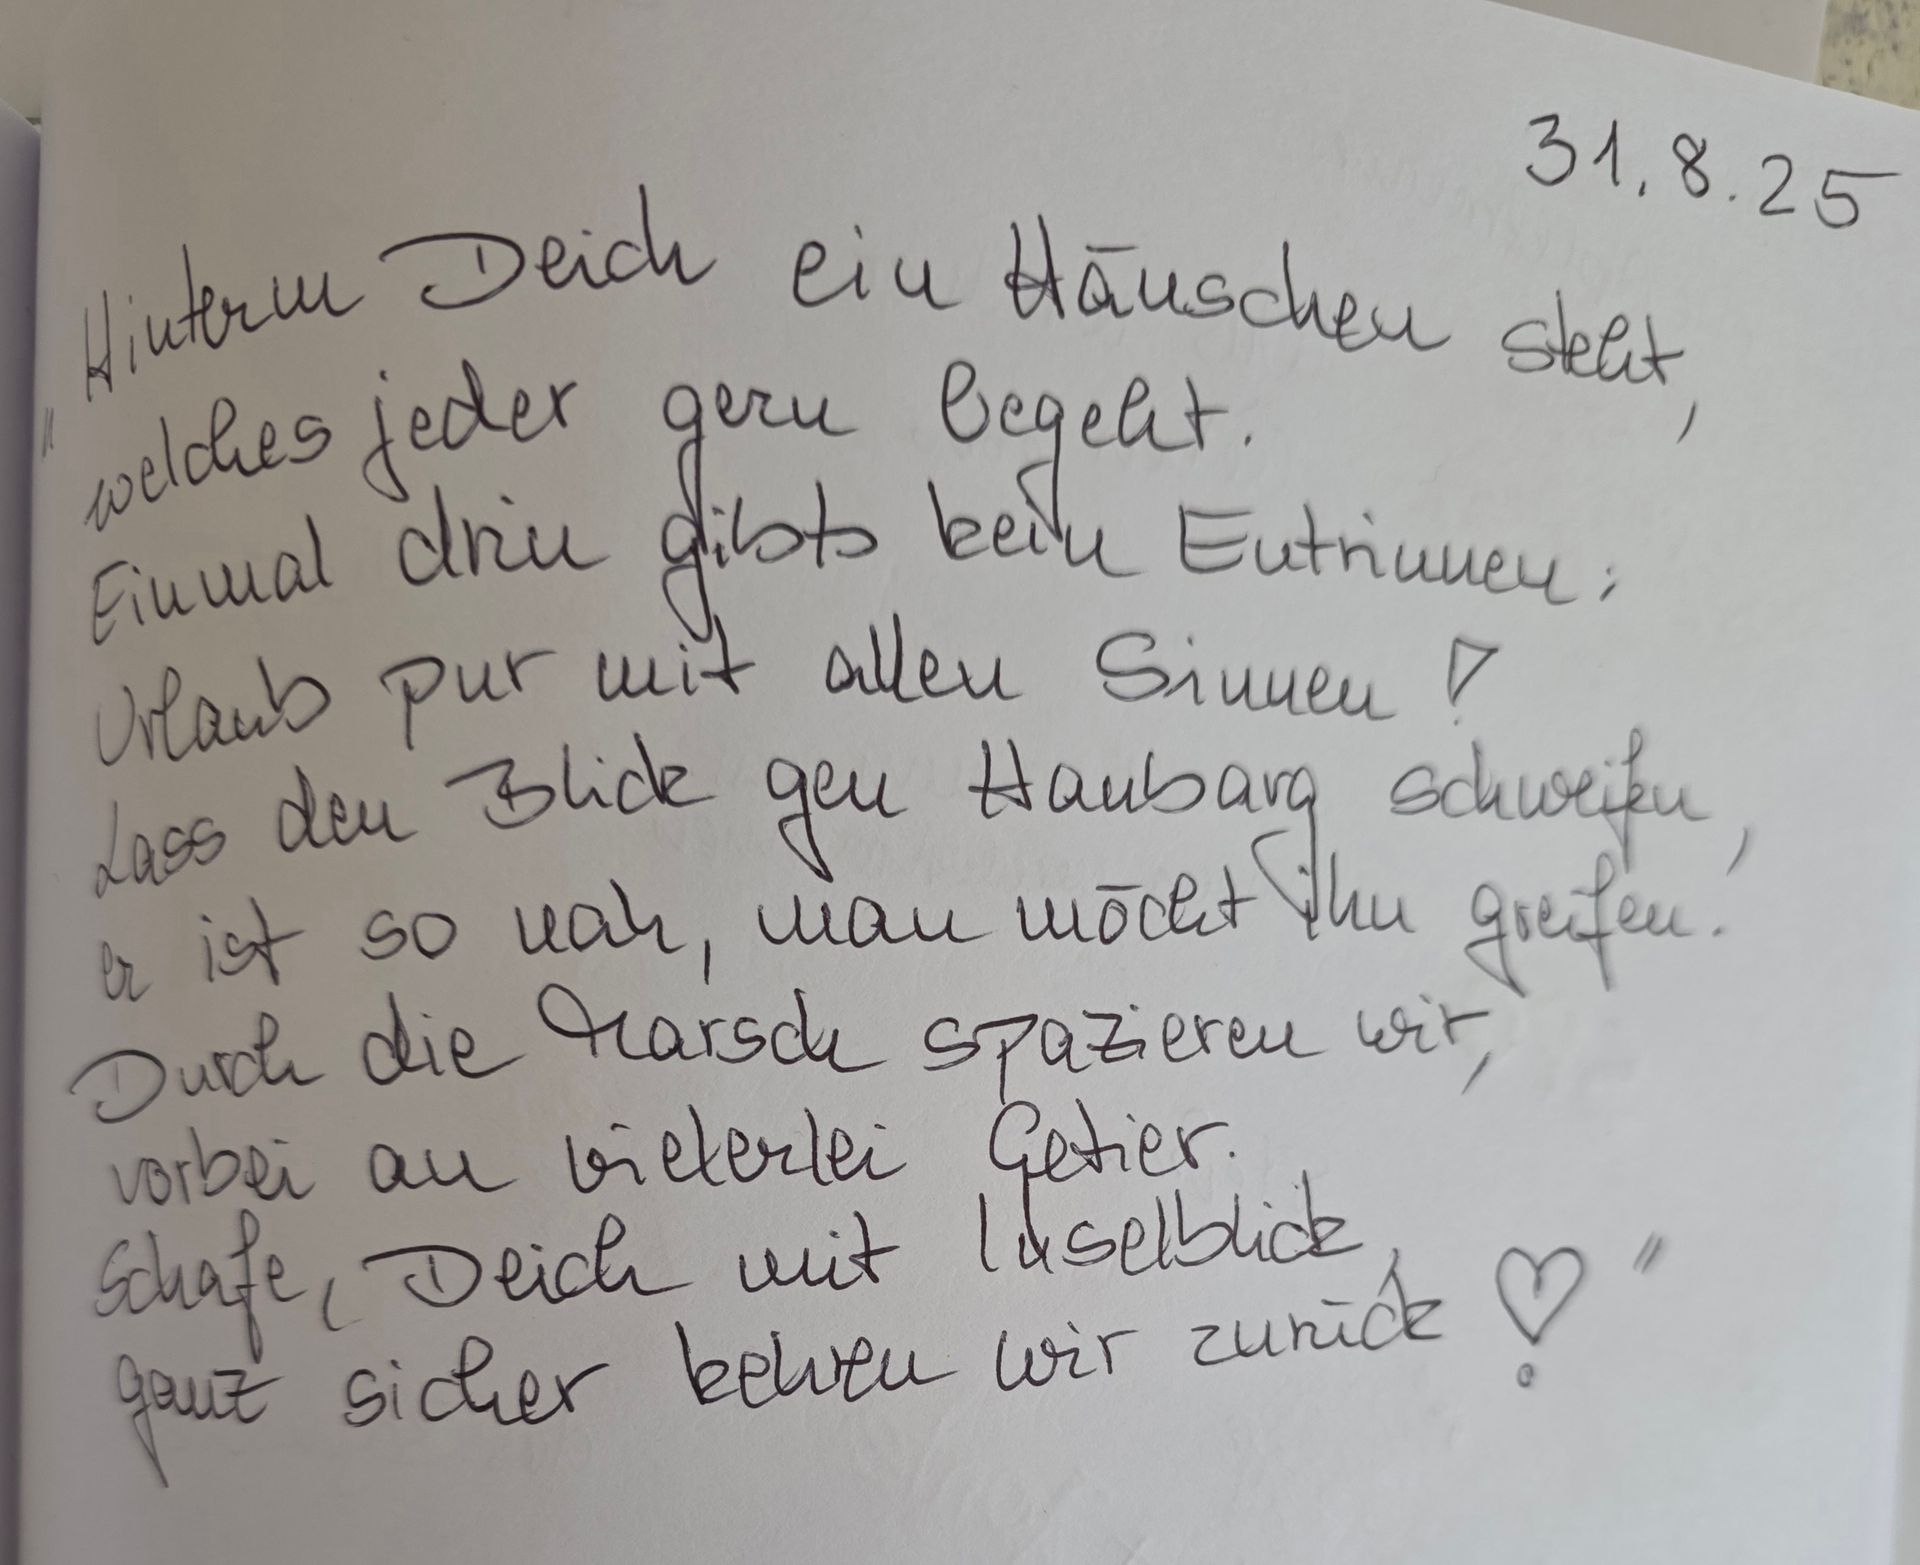 31.8.25
"Hinterm Deich ein Häuschen steht,
welches jeder gern begeht.
Einmal drin gibts kein Entrinnen:
Urlaub pur mit allen Sinnen!
Lass den Blick gen Haubarg schweifen,
er ist so nah, man möcht ihn greifen.
Durch die Marsch spazieren wir,
vorbei an vielerlei Getier.
Schafe, Deich mit Inselblick,
ganz sicher kehren wir zurück ♡"